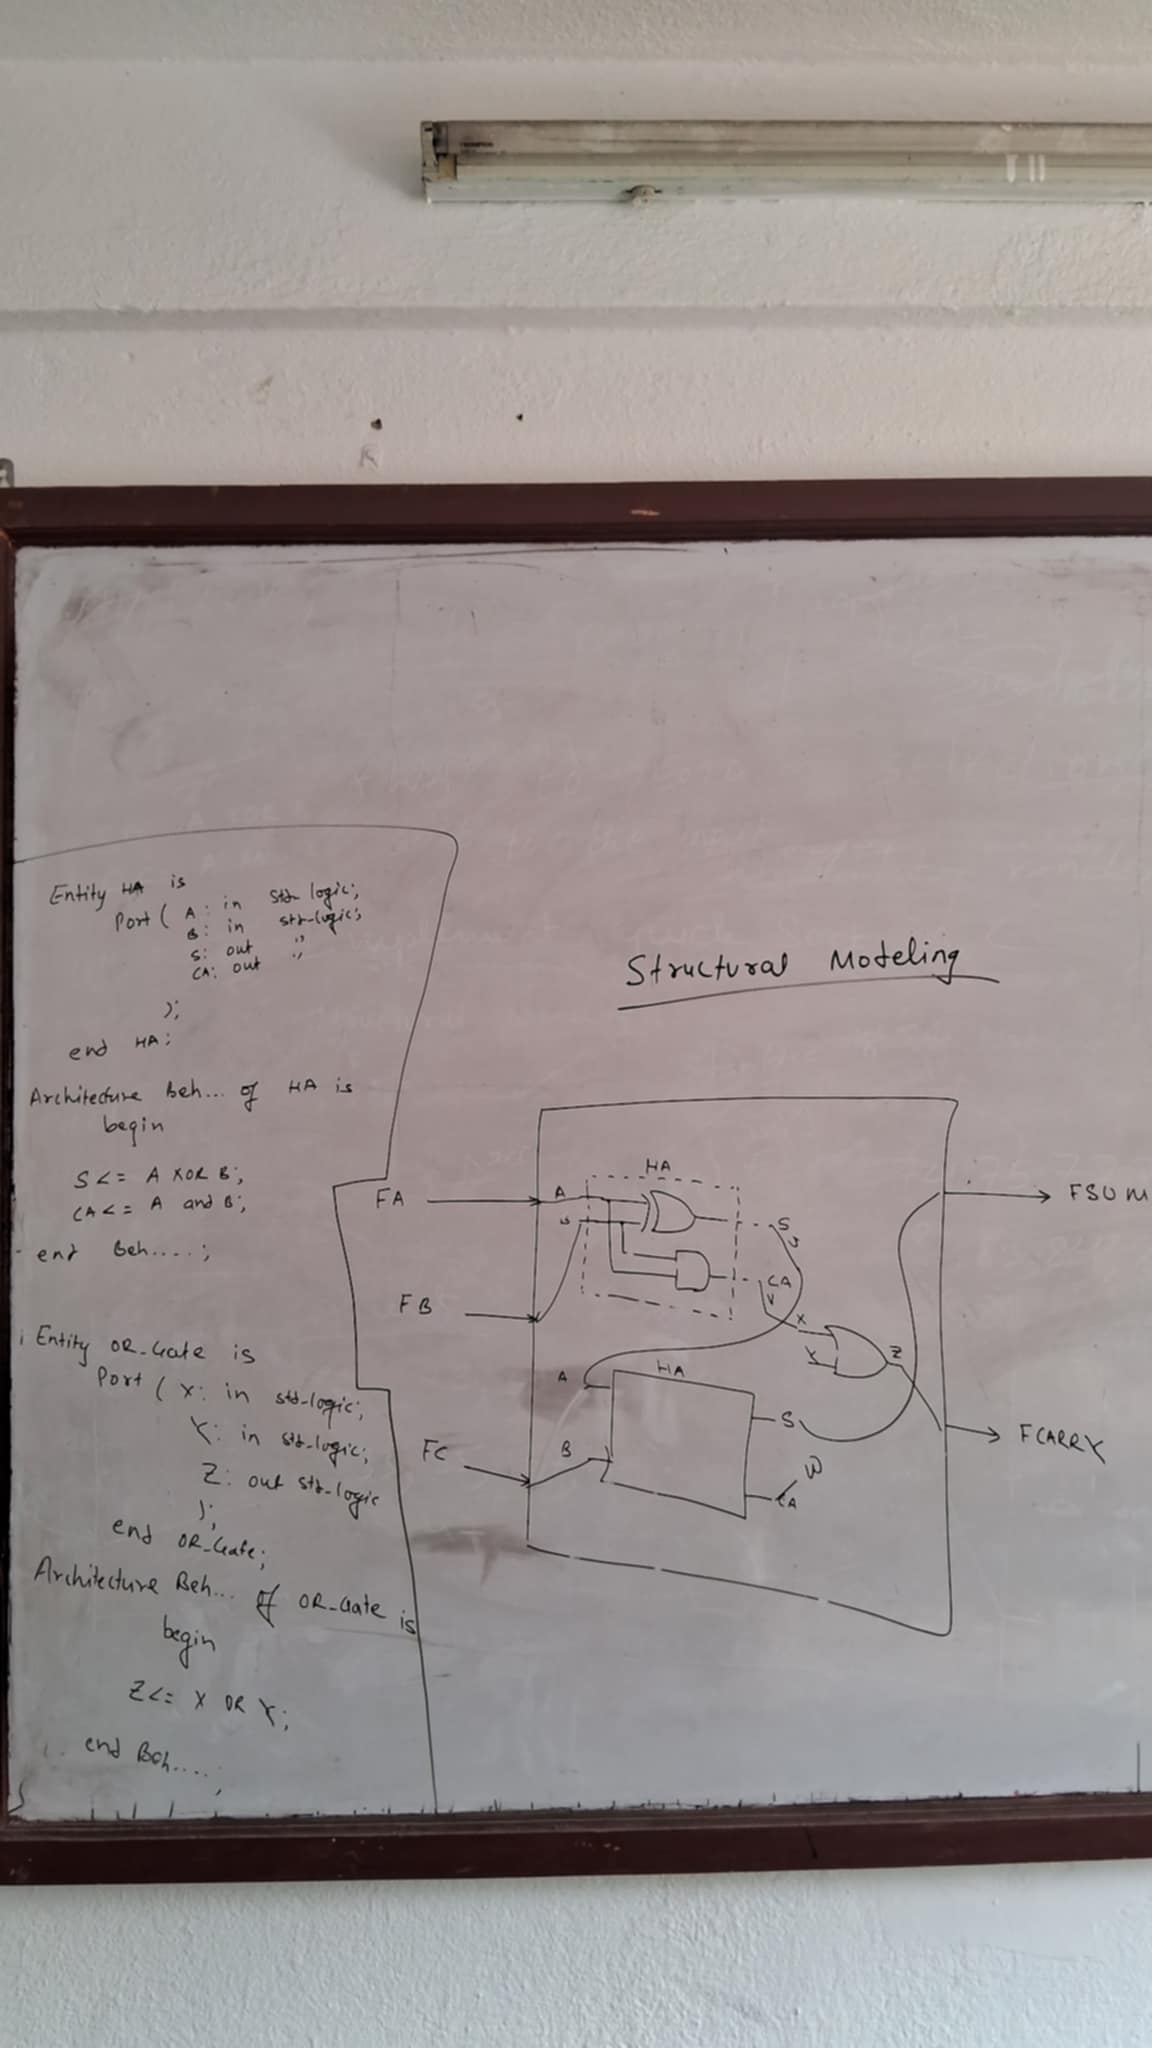 Entity HA is
Port ( A : in std-logic;
B : in std-logic;
S : out " ;
CA : out " ;
);
end HA;
Architecture Beh... of HA is
begin
S <= A XOR B;
CA <= A and B;
end Beh.....;
Entity OR_Gate is
Port ( X : in std-logic;
Y : in std-logic;
Z : out std-logic
);
end OR_Gate;
Architecture Beh... of OR_Gate is
begin
Z <= X OR Y;
end Beh....;
Structural Modeling
HA
FA
A
S
FSUM
B
U
CA
V
FB
X
Y
Z
HA
A
S
FCARRY
FC
B
W
CA